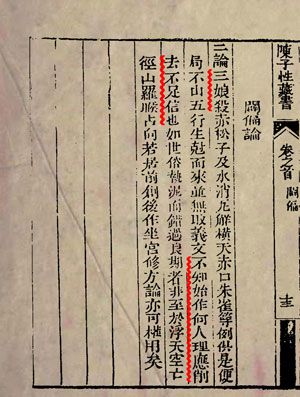 陳子性藏書
卷之首
闢偽
闢偽論
二論三娘殺亦松子及水消瓦解橫天亦口朱雀等例俱是便
局不由五行生尅而來並無取義文不知始作何人理應削
去不足信也如世俗執泥而錯過良期者非至於浮天空亡
徑山羅睺占向若居前創後作坐宮修方論亦可權用矣